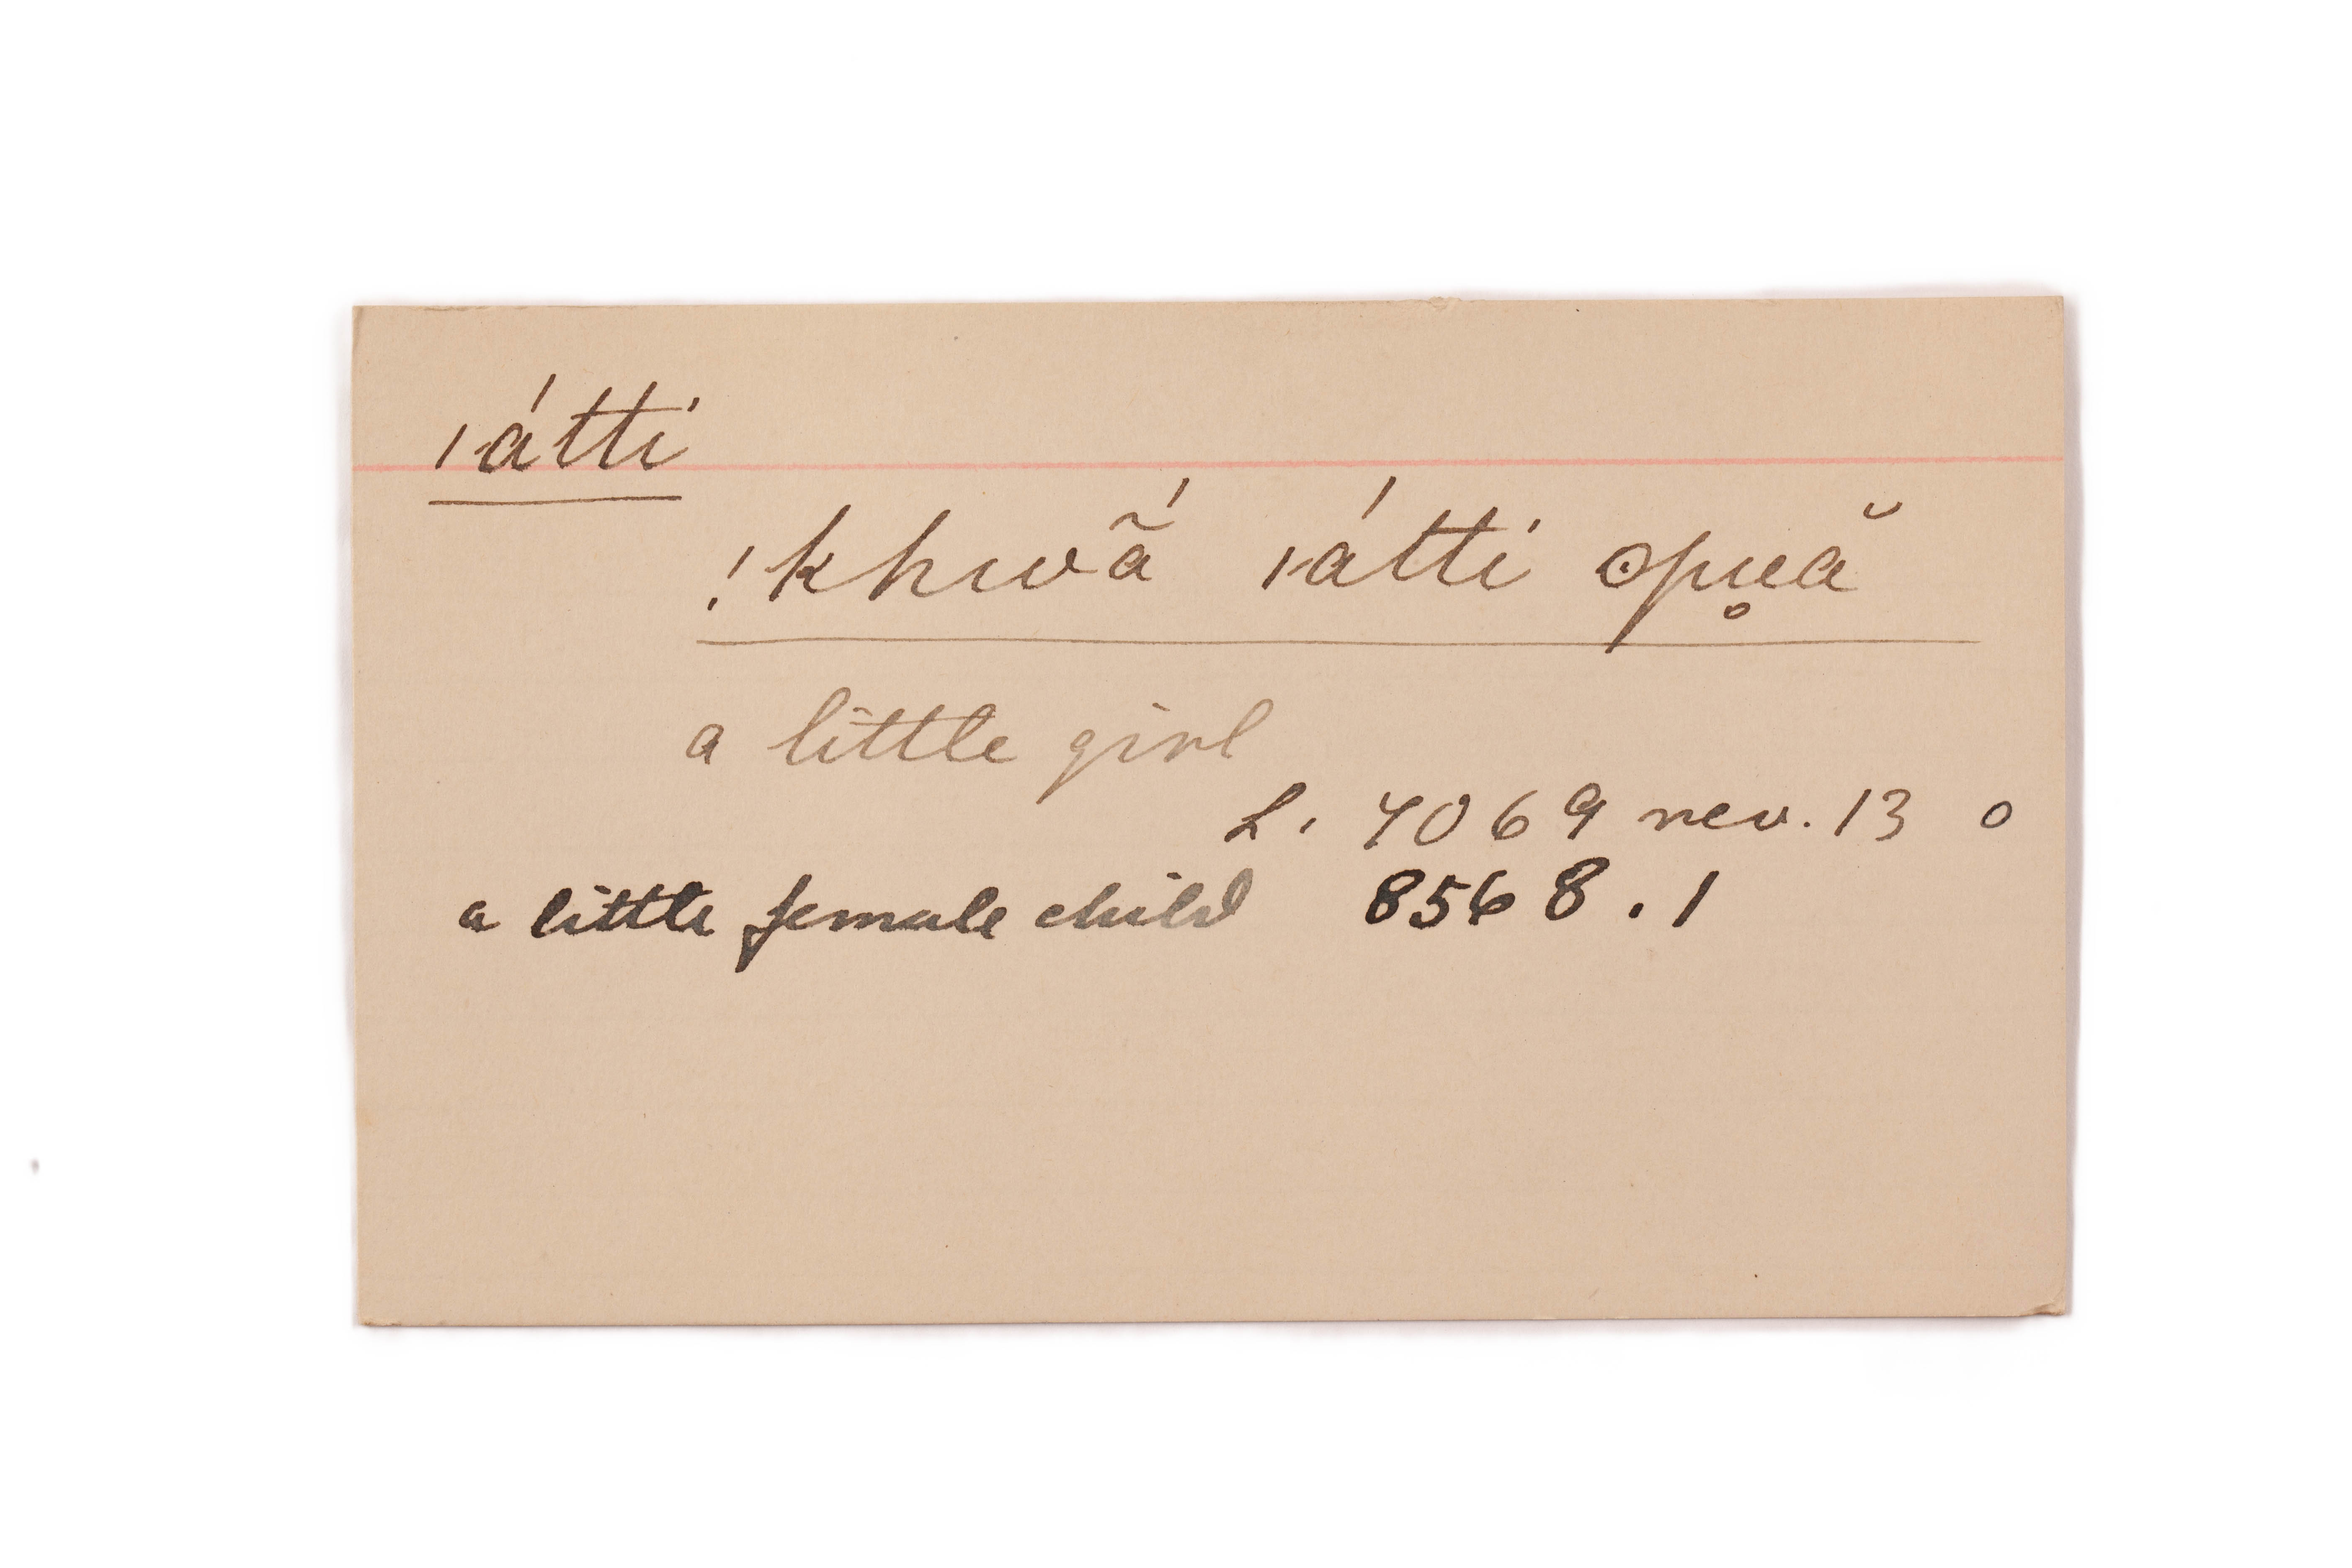 ǀátti
!khwã́ ǀátti ʘpu̥ă
a little girl
L. 4069 rev. 13 o
a little female child 8568.1